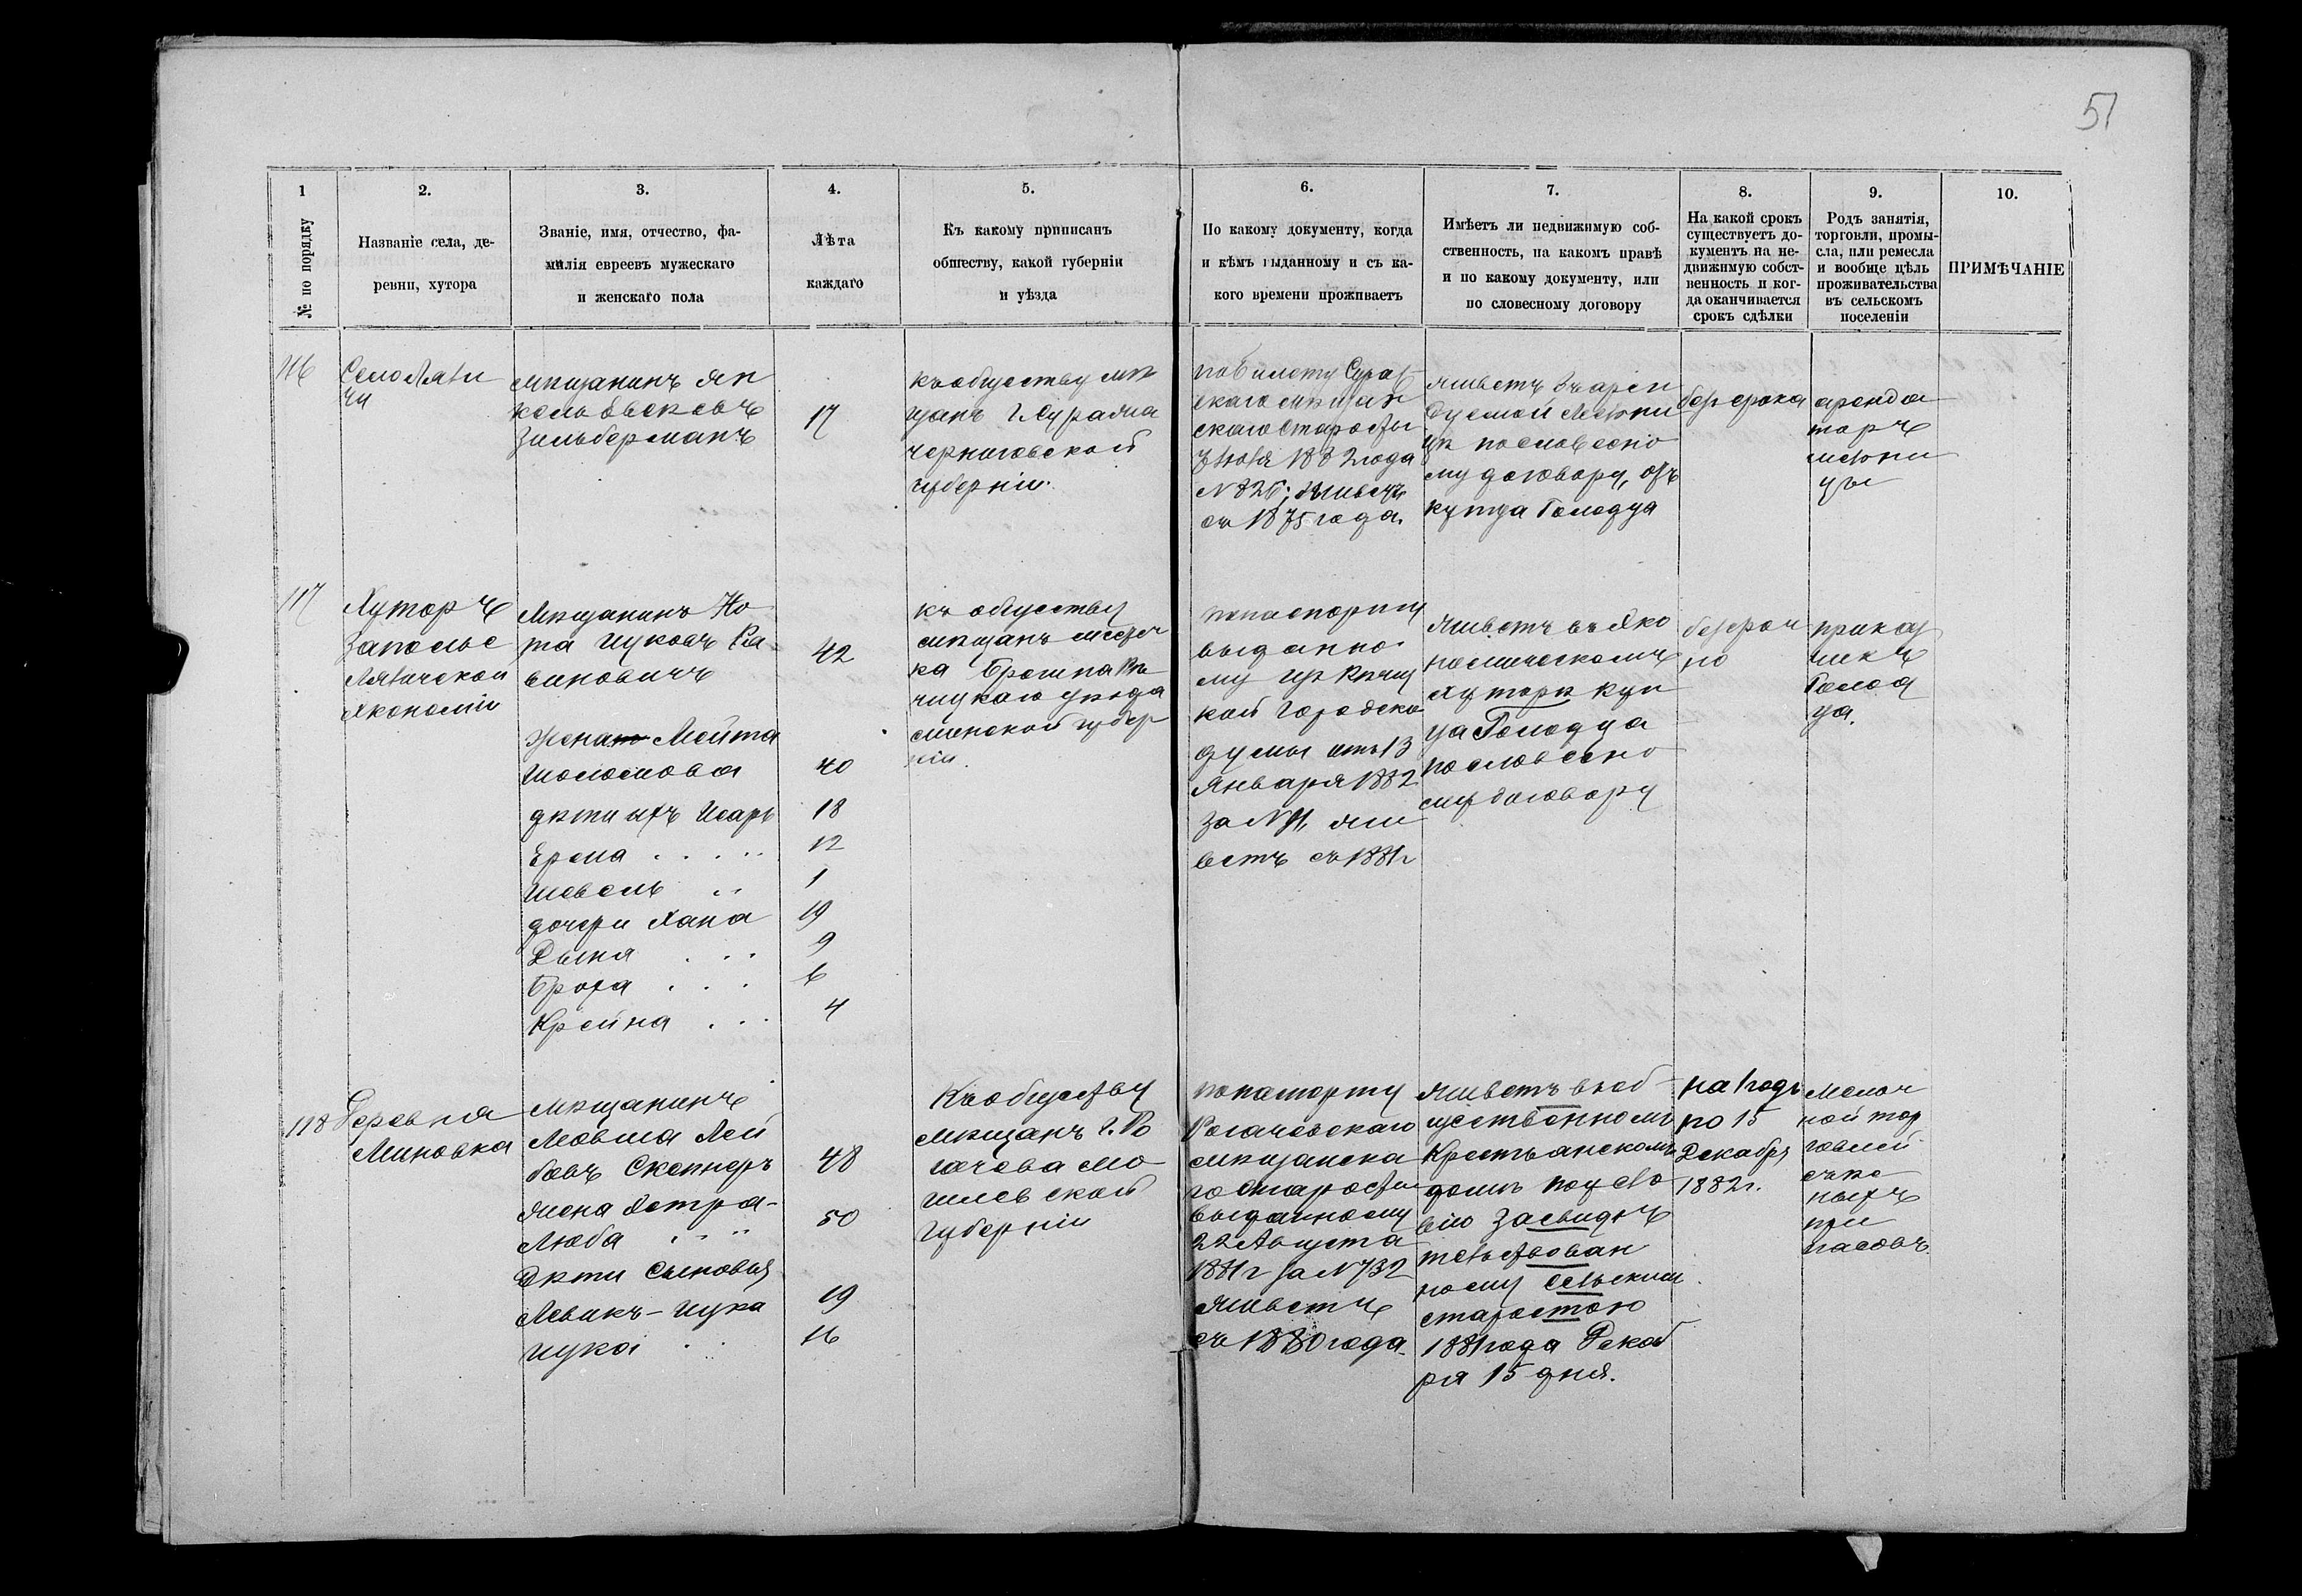 51
1
№ по порядку
2.
Названіе села, де-
ревни, хутора
3.
Званіе, имя, отчество, фа-
милія евреевъ мужескаго
и женскаго пола
4.
Лѣта
каждаго
5.
Къ какому приписанъ
обществу, какой губерніи
и уѣзда
6.
По какому документу, когда
и кѣмъ выданному и съ ка-
кого времени проживаетъ
7.
Имѣетъ ли недвижимую соб-
ственность, на какомъ правѣ
и по какому документу, или
по словесному договору
8.
На какой срокъ
существуетъ до-
кументъ на не-
движимую собст-
венность и ког-
да оканчивается
срокъ сдѣлки
9.
Родъ занятія,
торговли, промы-
сла, или ремесла
и вообще цѣль
проживательства
въ сельскомъ
поселеніи
10.
ПРИМѢЧАНІЕ
116
Село Ляли
чи
мѣщанинъ Ян
кель
Зильберманъ
17
къ обществу мѣ
щанъ г. Суража
черниговской
губерніи.
по билету Сураж
скаго мѣщан
скаго Старосты
1882 года
№ 826; живетъ
съ 1875 года.
живетъ въ арен
дуемой мельни
цѣ по словесно
му договору, отъ
купца Голодца
безъ срока
аренда
торъ
мельни
цы
117
Хуторъ
Заполье
Ляличской
Экономіи
Мѣщанинъ Но
та Цуковъ Ра-
виновичъ
42
жена Мейта
Шоломова
40
дѣти ихъ Исаръ
18
Ерема
12
Шевель
1
дочери Хана
19
Дыня
9
Броха
6
Крейна
4
къ обществу
мѣщанъ местеч
ка Брагина Рѣ
чицкаго уѣзда
минской губер
ніи.
по паспорту
выданно
му изъ Рѣчиц
кой Городско
думы отъ 13
Января 1882
за № 71, жи
ветъ съ 1881 г
живетъ въ Эко
номическомъ
хуторѣ куп
ца Голодца
по словесно
му договору
безсроч
но
приказ
чикъ
Голод
ца.
118
Деревня
Миновка
мѣщанинъ
Мовша Лей
бовъ
48
жена Естра-
Люба
50
Дѣти Сыновья
Левикъ-Цука
19
Цука
16
Къ обществу
мѣщанъ г. Ро
гачева Мо
гилевской
губерніи
по паспорту
Рогачевскаго
мѣщанска
го Старосты
выданному
22 Августа
1881 г за № 732
живетъ
съ 1880 года
живетъ въ об
щественномъ
Крестьянскомъ
домѣ по усло
вію засвидѣ
тельствован
ному Сельскимъ
старостою
1881 года Декаб
ря 15 дня.
на 1 годъ
по 15
Декабря
1882 г.
Мелоч
ной тор
говлей
съѣс
ныхъ
при
пасовъ.